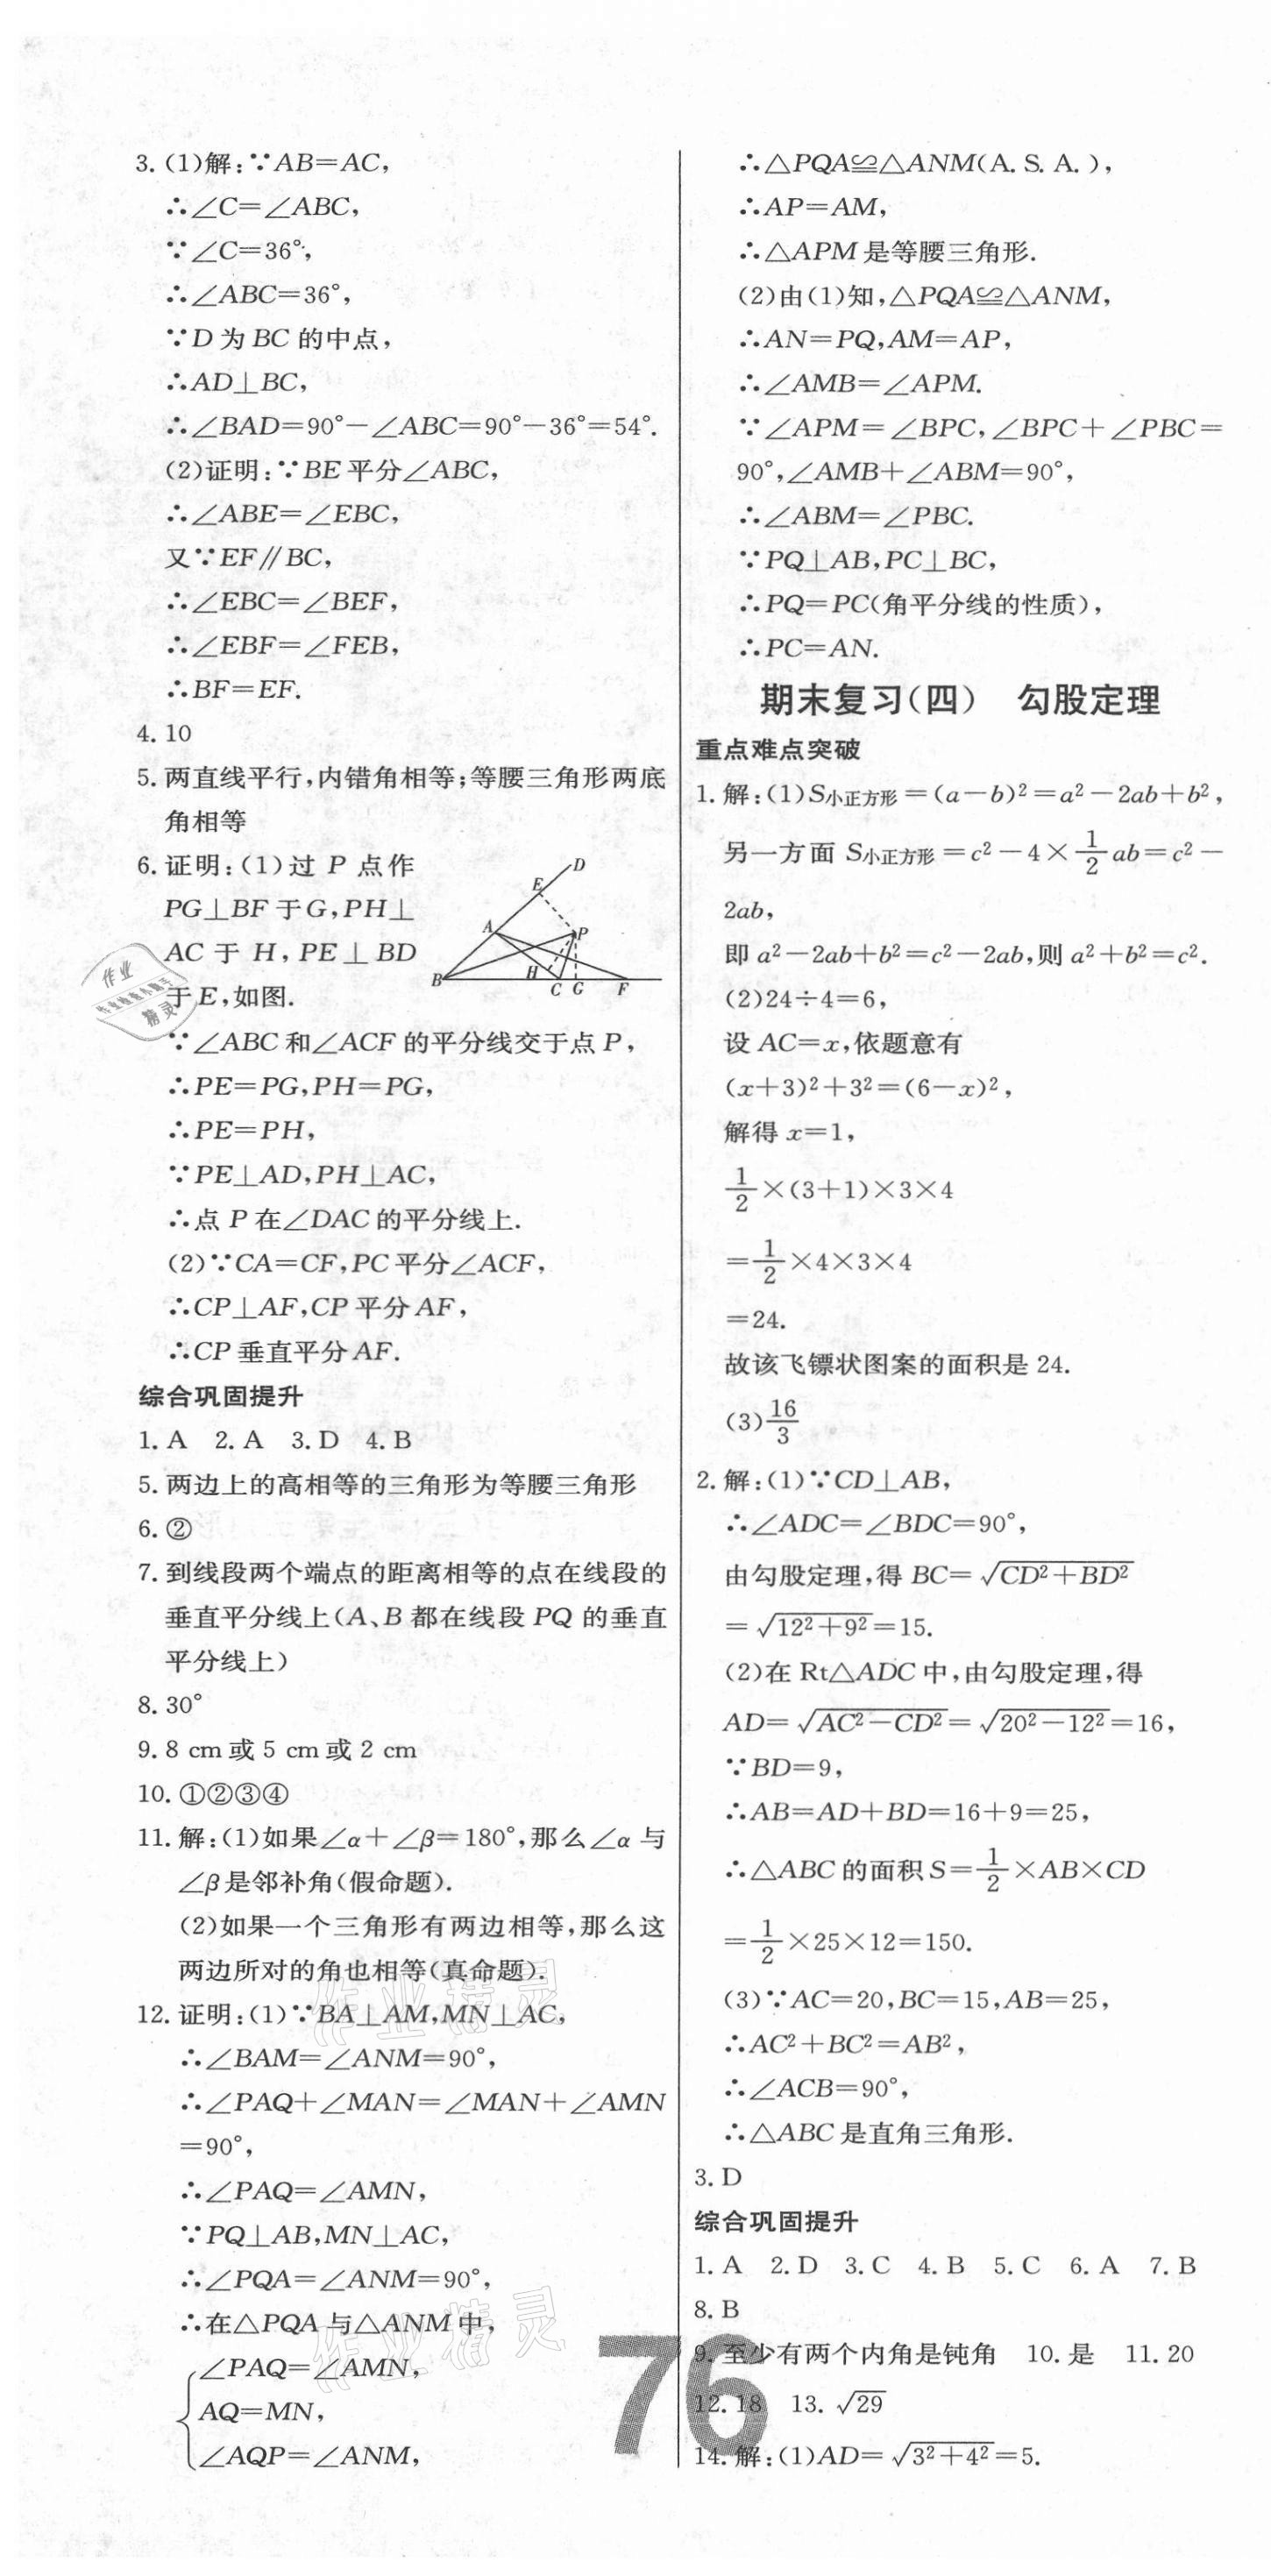 3. (1)解:∵AB=AC,
∴∠C=∠ABC,
∵∠C=36°,
∴∠ABC=36°,
∵D为BC的中点,
∴AD⊥BC,
∴∠BAD=90°-∠ABC=90°-36°=54°.
(2)证明:∵BE平分∠ABC,
∴∠ABE=∠EBC,
又∵EF∥BC,
∴∠EBC=∠BEF,
∴∠EBF=∠FEB,
∴BF=EF.
4. 10
5. 两直线平行,内错角相等;等腰三角形两底
角相等
6. 证明:(1)过 P 点作
PG⊥BF于G,PH⊥
AC于 H,PE⊥BD
于E,如图.
D
E
A
P
B
H
C G F
∵∠ABC和∠ACF的平分线交于点P,
∴PE=PG,PH=PG,
∴PE=PH,
∵PE⊥AD,PH⊥AC,
∴点P在∠DAC的平分线上.
(2)∵CA=CF,PC平分∠ACF,
∴CP⊥AF,CP平分AF,
∴CP垂直平分AF.
综合巩固提升
1. A 2. A 3. D 4. B
5. 两边上的高相等的三角形为等腰三角形
6. ②
7. 到线段两个端点的距离相等的点在线段的
垂直平分线上(A、B都在线段PQ的垂直
平分线上)
8. 30°
9. 8 cm或5 cm或2 cm
10. ①②③④
11. 解:(1)如果∠α+∠β=180°,那么∠α与
∠β是邻补角(假命题).
(2)如果一个三角形有两边相等,那么这
两边所对的角也相等(真命题).
12. 证明:(1)∵BA⊥AM,MN⊥AC,
∴∠BAM=∠ANM=90°,
∴∠PAQ+∠MAN=∠MAN+∠AMN
=90°,
∴∠PAQ=∠AMN,
∵PQ⊥AB,MN⊥AC,
∴∠PQA=∠ANM=90°,
∴在△PQA与△ANM中,
∠PAQ=∠AMN,
AQ=MN,
∠AQP=∠ANM,
∴△PQA≌△ANM(A. S. A.),
∴AP=AM,
∴△APM是等腰三角形.
(2)由(1)知,△PQA≌△ANM,
∴AN=PQ,AM=AP,
∴∠AMB=∠APM.
∵∠APM=∠BPC,∠BPC+∠PBC=
90°,∠AMB+∠ABM=90°,
∴∠ABM=∠PBC.
∵PQ⊥AB,PC⊥BC,
∴PQ=PC(角平分线的性质),
∴PC=AN.
期末复习(四) 勾股定理
重点难点突破
1. 解:(1)S小正方形=(a-b)²=a²-2ab+b²,
另一方面 S小正方形=c²-4×1/2 ab=c²-
2ab,
即a²-2ab+b²=c²-2ab,则a²+b²=c².
(2)24÷4=6,
设AC=x,依题意有
(x+3)²+3²=(6-x)²,
解得x=1,
1/2×(3+1)×3×4
=1/2×4×3×4
=24.
故该飞镖状图案的面积是24.
(3)16/3
2. 解:(1)∵CD⊥AB,
∴∠ADC=∠BDC=90°,
由勾股定理,得BC=√(CD²+BD²)
=√(12²+9²)=15.
(2)在Rt△ADC中,由勾股定理,得
AD=√(AC²-CD²)=√(20²-12²)=16,
∵BD=9,
∴AB=AD+BD=16+9=25,
∴△ABC的面积S=1/2×AB×CD
=1/2×25×12=150.
(3)∵AC=20,BC=15,AB=25,
∴AC²+BC²=AB²,
∴∠ACB=90°,
∴△ABC是直角三角形.
3. D
综合巩固提升
1. A 2. D 3. C 4. B 5. C 6. A 7. B
8. B
9. 至少有两个内角是钝角 10. 是 11. 20
12. 18 13. √29
14. 解:(1)AD=√(3²+4²)=5.
76
作业
精灵
作业精灵
作业精灵